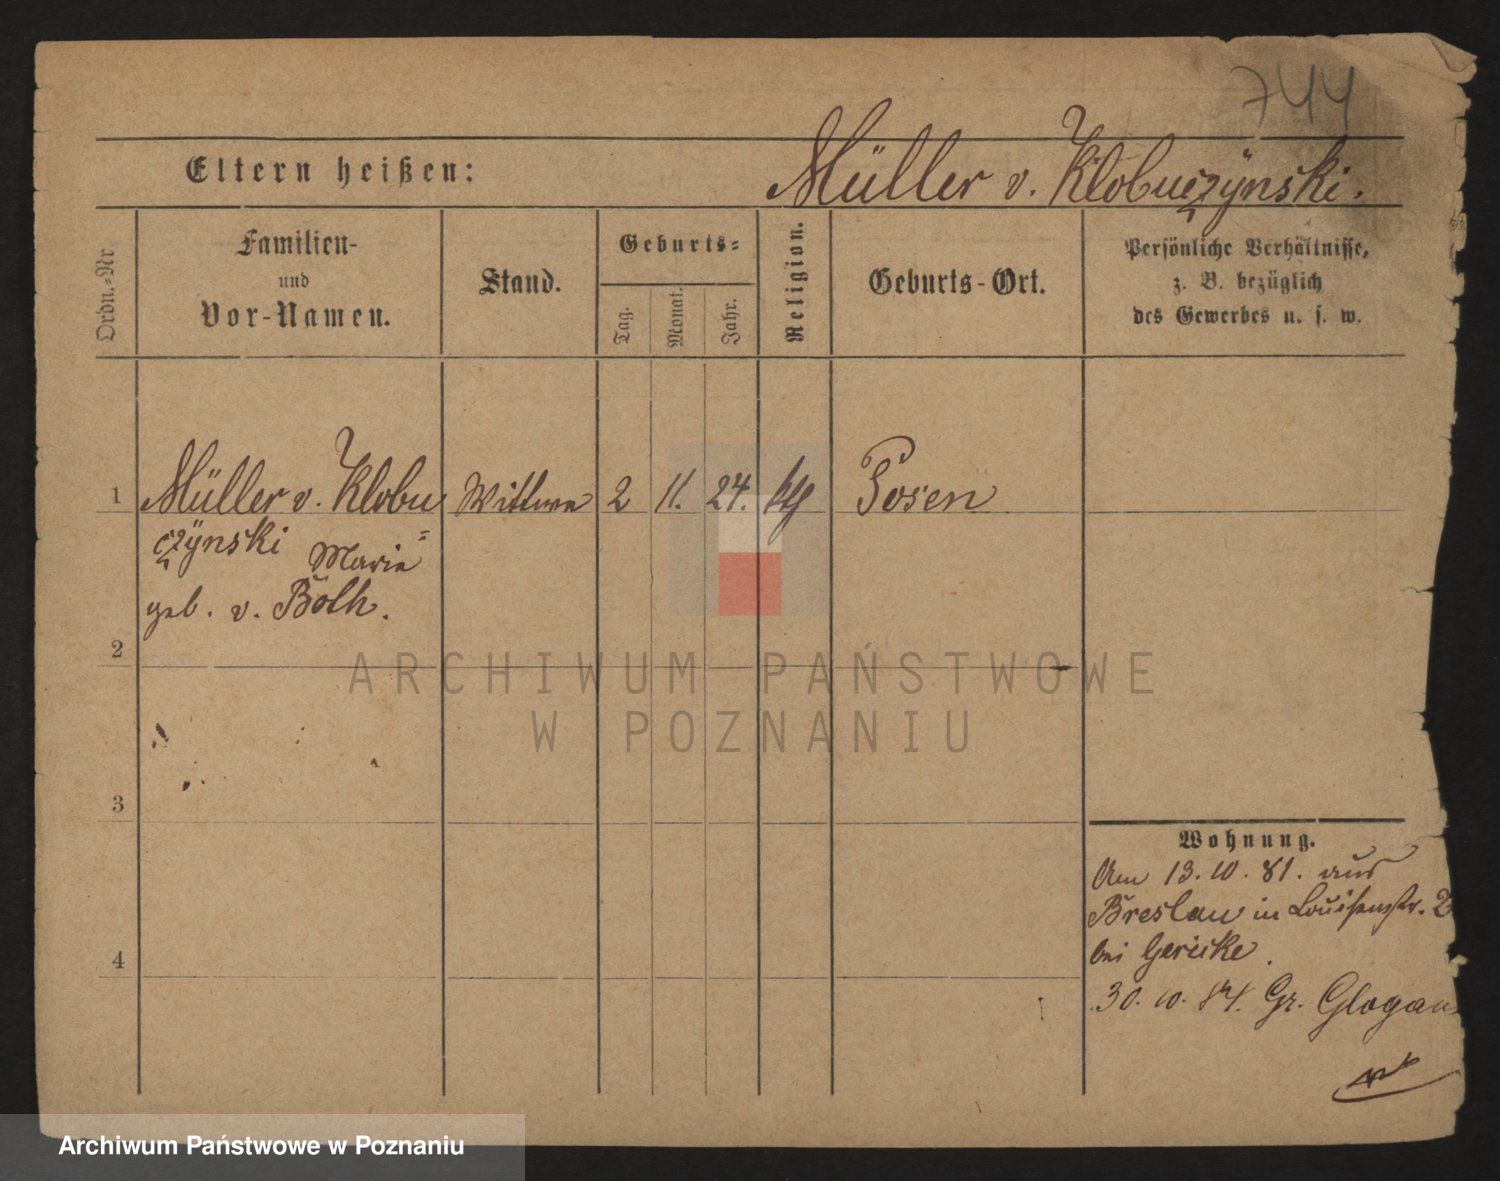 744
Eltern heißen:
Müller v. Klobuczÿnski.
Ordn.-Nr
Familien-
und
Vor-Namen.
Stand.
Geburts-
Tag.
Monat.
Jahr.
Religion.
Geburts-Ort.
Persönliche Verhältnisse,
z. B. bezüglich
des Gewerbes u. s. w.
1
Müller v. Klobu
Wittwe
2
11.
24.
Posen
czÿnski Marie
geb. v. Both.
2
ARCHIWUM PAŃSTWOWE
W POZNANIU
3
Wohnung.
Am 13.10.81. aus
Breslau in Louisenstr. 2
bei Gericke.
4
30.10.84. Gr. Glogau
Archiwum Państwowe w Poznaniu